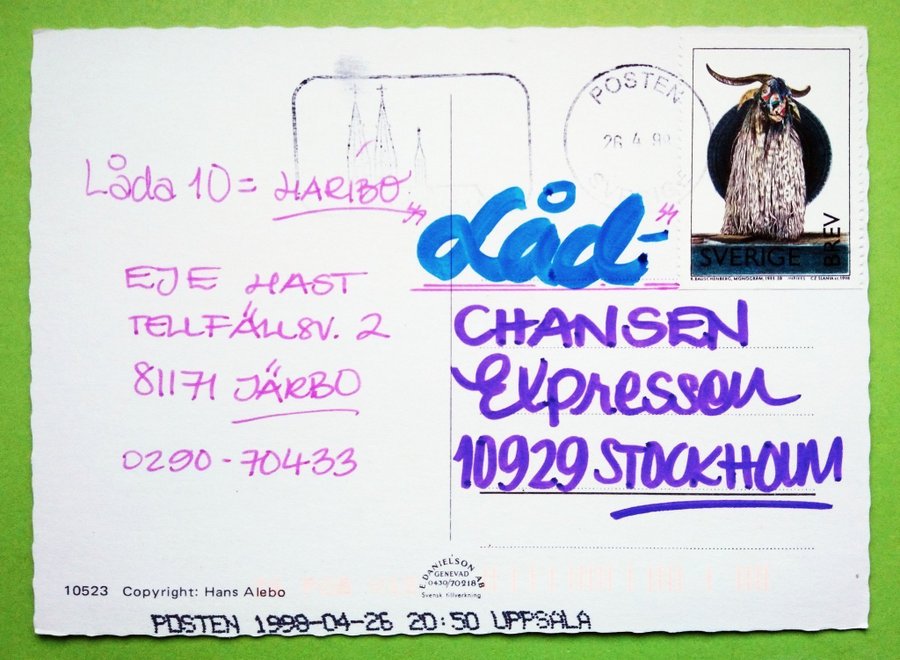 POSTEN
26.4.9
SVERIGE BREV
R. RAUSCHENBERG, MONOGRAM, 1955-59
CZ SLANIA sc. 1998
Låda 10 = HARIBO
"Låd-"
CHANSEN
Expressen
10929 STOCKHOLM
EJE HAST
TELLFÄLLSV. 2
81171 JÄRBO
0290-70433
E. DANIELSON AB
GENEVAD
0430/70218
Svensk tillverkning
10523 Copyright: Hans Alebo
POSTEN 1998-04-26 20:50 UPPSALA